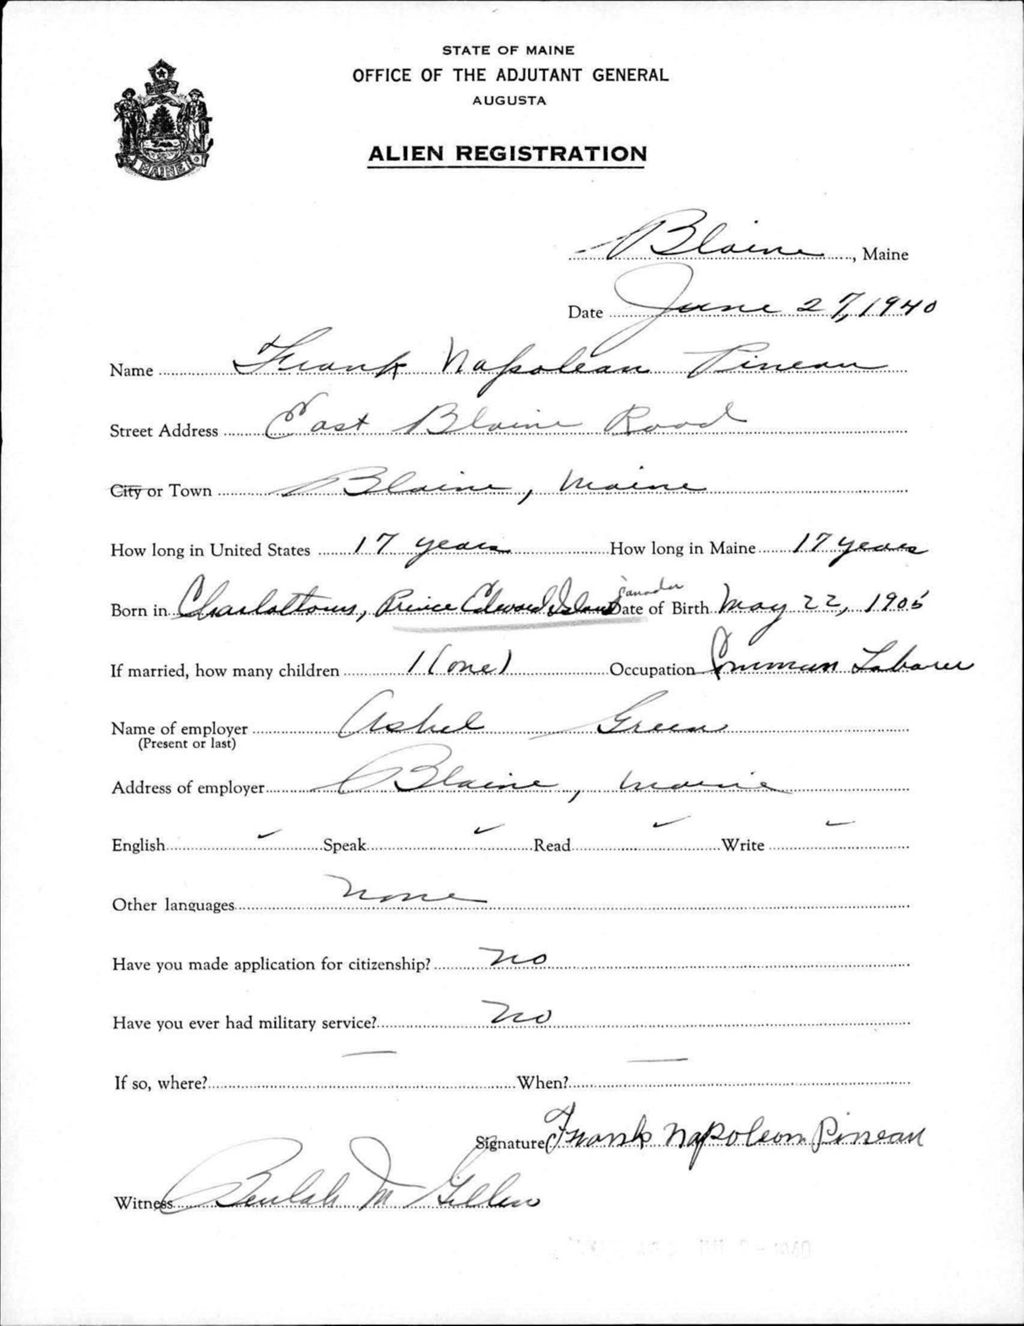 STATE OF MAINE
OFFICE OF THE ADJUTANT GENERAL
AUGUSTA
MAINE
ALIEN REGISTRATION
Blaine, Maine
Date June 27, 1940
Name Frank Napolean Pineau
Street Address East Blaine Road
City or Town Blaine, Maine
How long in United States 17 years How long in Maine 17 years
Born in Charlottown, Prince Edward Island Canada Date of Birth May 22, 1905
If married, how many children 1 (one) Occupation Common Laborer
Name of employer Ashel Green
(Present or last)
Address of employer Blaine, Maine
English ✓ Speak ✓ Read ✓ Write ✓
Other languages None
Have you made application for citizenship? No
Have you ever had military service? No
If so, where? — When? —
Signature Frank Napoleon Pineau
Witness Beulah M